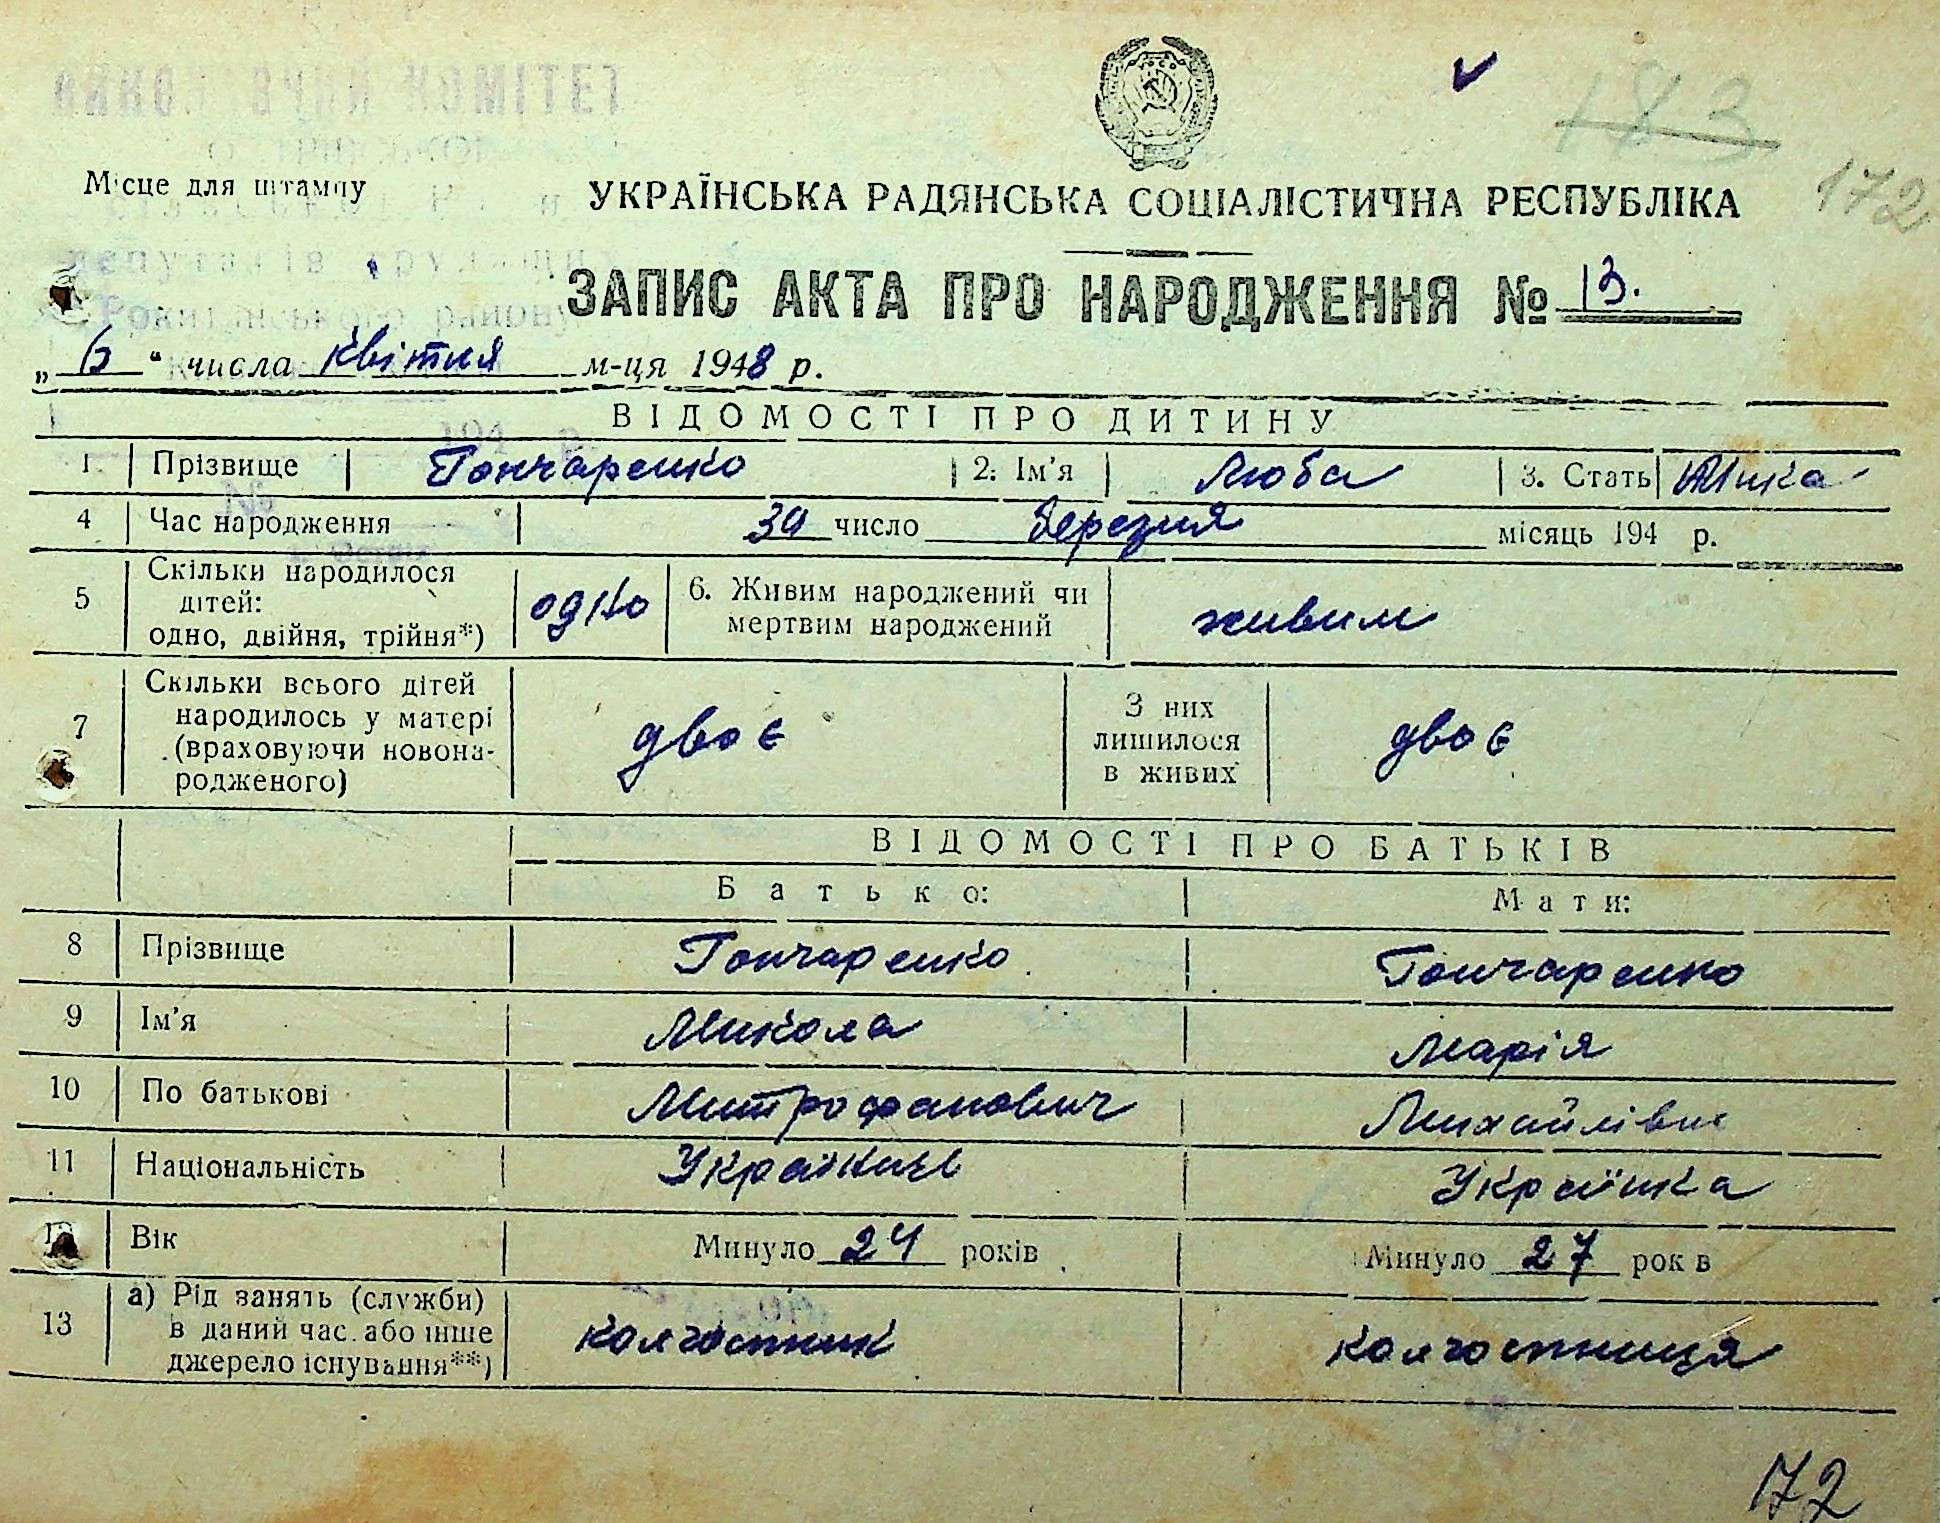 183
172
Місце для штампу
УКРАЇНСЬКА РАДЯНСЬКА СОЦІАЛІСТИЧНА РЕСПУБЛІКА
ЗАПИС АКТА ПРО НАРОДЖЕННЯ № 13.
„ 6 “ числа квітня м-ця 1948 р.
ВІДОМОСТІ ПРО ДИТИНУ
1 Прізвище Гончаренко 2. Ім'я Люба 3. Стать жінка
4 Час народження 30 число березня місяць 194 р.
5 Скільки народилося дітей: одно, двійня, трійня*) одно 6. Живим народжений чи мертвим народжений живим
7 Скільки всього дітей народилось у матері (враховуючи новонародженого) двоє З них лишилося в живих двоє
ВІДОМОСТІ ПРО БАТЬКІВ
Батько: Мати:
8 Прізвище Гончаренко Гончаренко
9 Ім'я Микола Марія
10 По батькові Митрофанович Михайлівна
11 Національність Українець Українка
Вік Минуло 24 років Минуло 27 рок в
13 а) Рід занять (служби) в даний час або інше джерело існування**) колгоспник колгоспниця
72